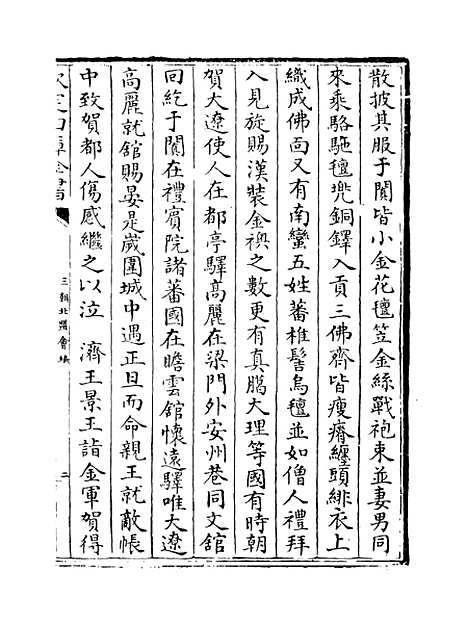 散披其服于闐皆小金花氊笠金絲戰袍束並妻男同
來乗駱駞氊兠銅鐸入貢三佛齊皆瘦瘠纏頭緋衣上
織成佛面又有南蠻五姓蕃椎髻烏氊並如僧人禮拜
入見旋賜漢装金襖之數更有真臘大理等國有時朝
賀大遼使人在都亭驛髙麗在梁門外安州巷同文舘
回紇于闐在禮賓院諸蕃國在瞻雲舘懷遠驛唯大遼
髙麗就舘賜宴是歲圍城中遇正旦而命親王就敵帳
中致賀都人傷感繼之以泣 濟王景王詣金軍賀得
欽定四庫全書
三朝北盟會編
二